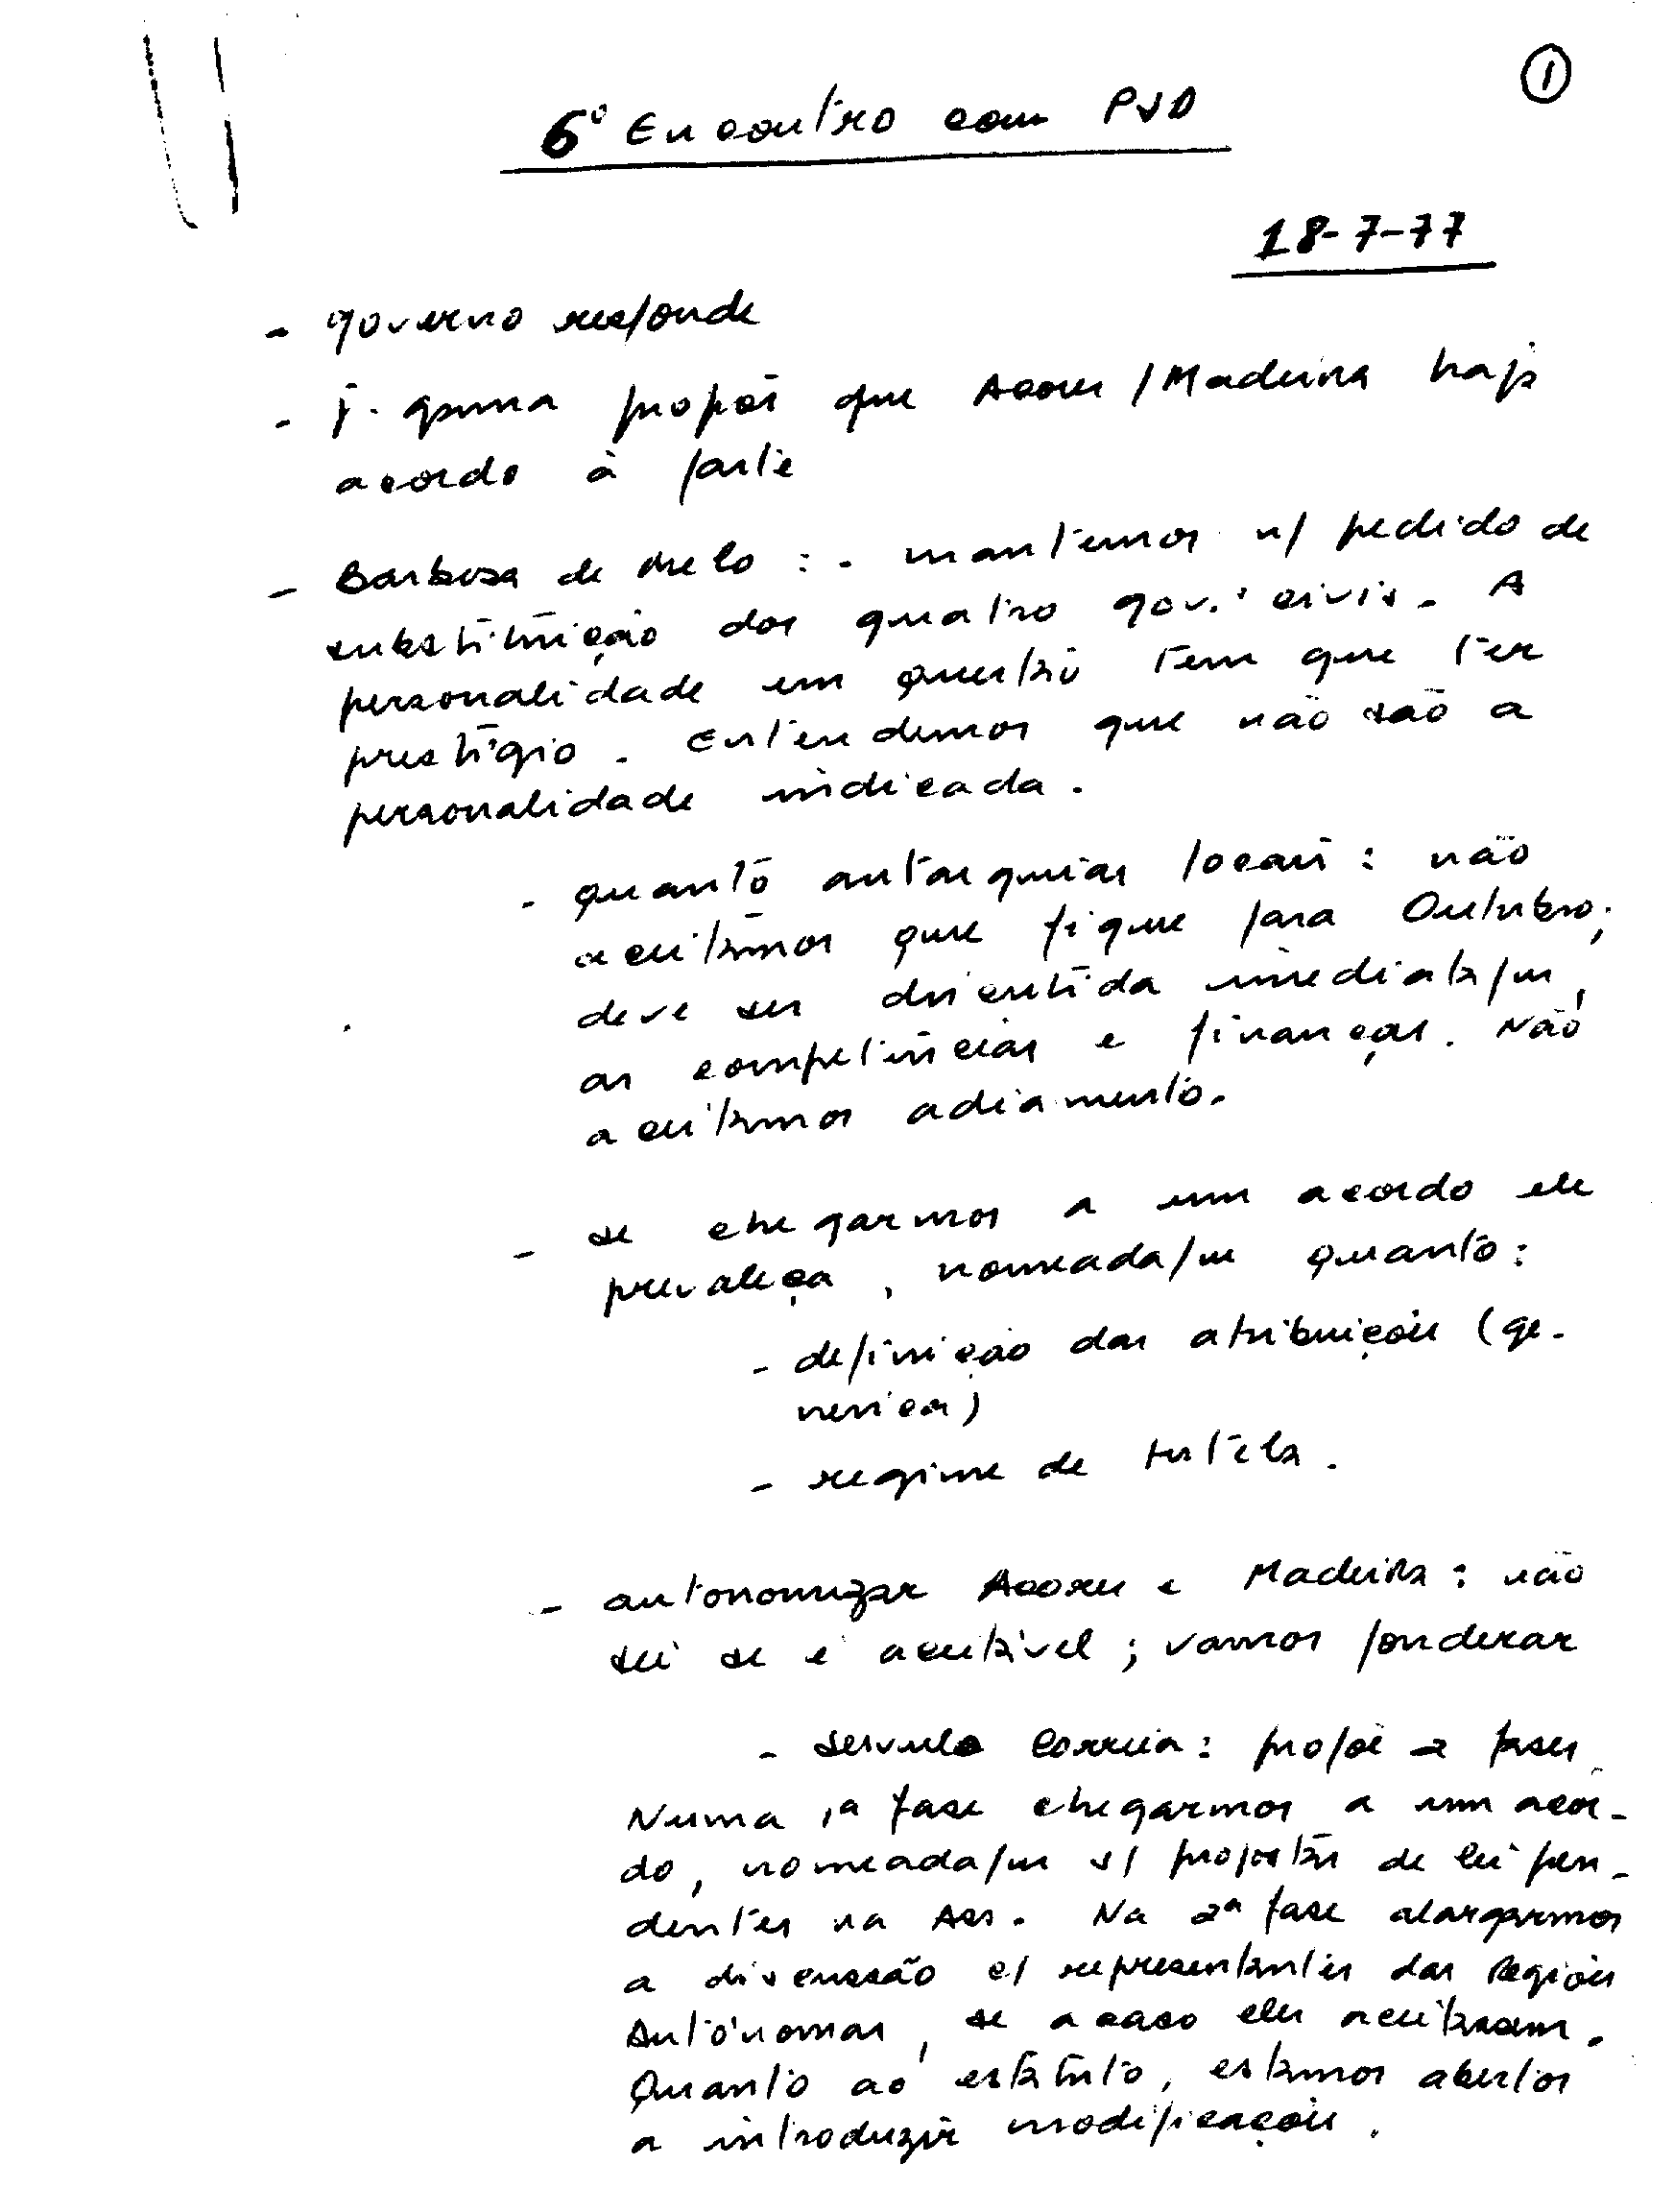 ①
6º Encontro com PSD
18-7-77
- governo responde
- J. gama propõs que Açores / Madeira haja
acordo à parte
- Barbosa de Melo : - mantemos n/ pedido de
substituição dos quatro gov.s civis. A
personalidade em questão tem que ter
prestígio. Entendemos que não são a
personalidade indicada.
- quanto autarquias locais : não
aceitamos que fique para Outubro;
deve ser discutida imediata/m,
as competências e finanças. Não
aceitamos adiamento.
- se chegarmos a um acordo ele
prevaleça, nomeada/m quanto :
- definição das atribuições (ge-
nerica)
- regime de tutela.
- autonomizar Açores e Madeira : não
sei se é aceitável ; vamos ponderar
- servulo Correia : propõe 2 fases.
Numa 1ª fase chegarmos a um acor-
do, nomeada/m s/ propostas de lei pen-
dentes na Ass. Na 2ª fase alargarmos
a discussão c/ representantes das Regiões
Autónomas, se acaso eles aceitassem.
Quanto ao estatuto, estamos abertos
a introduzir modificações.